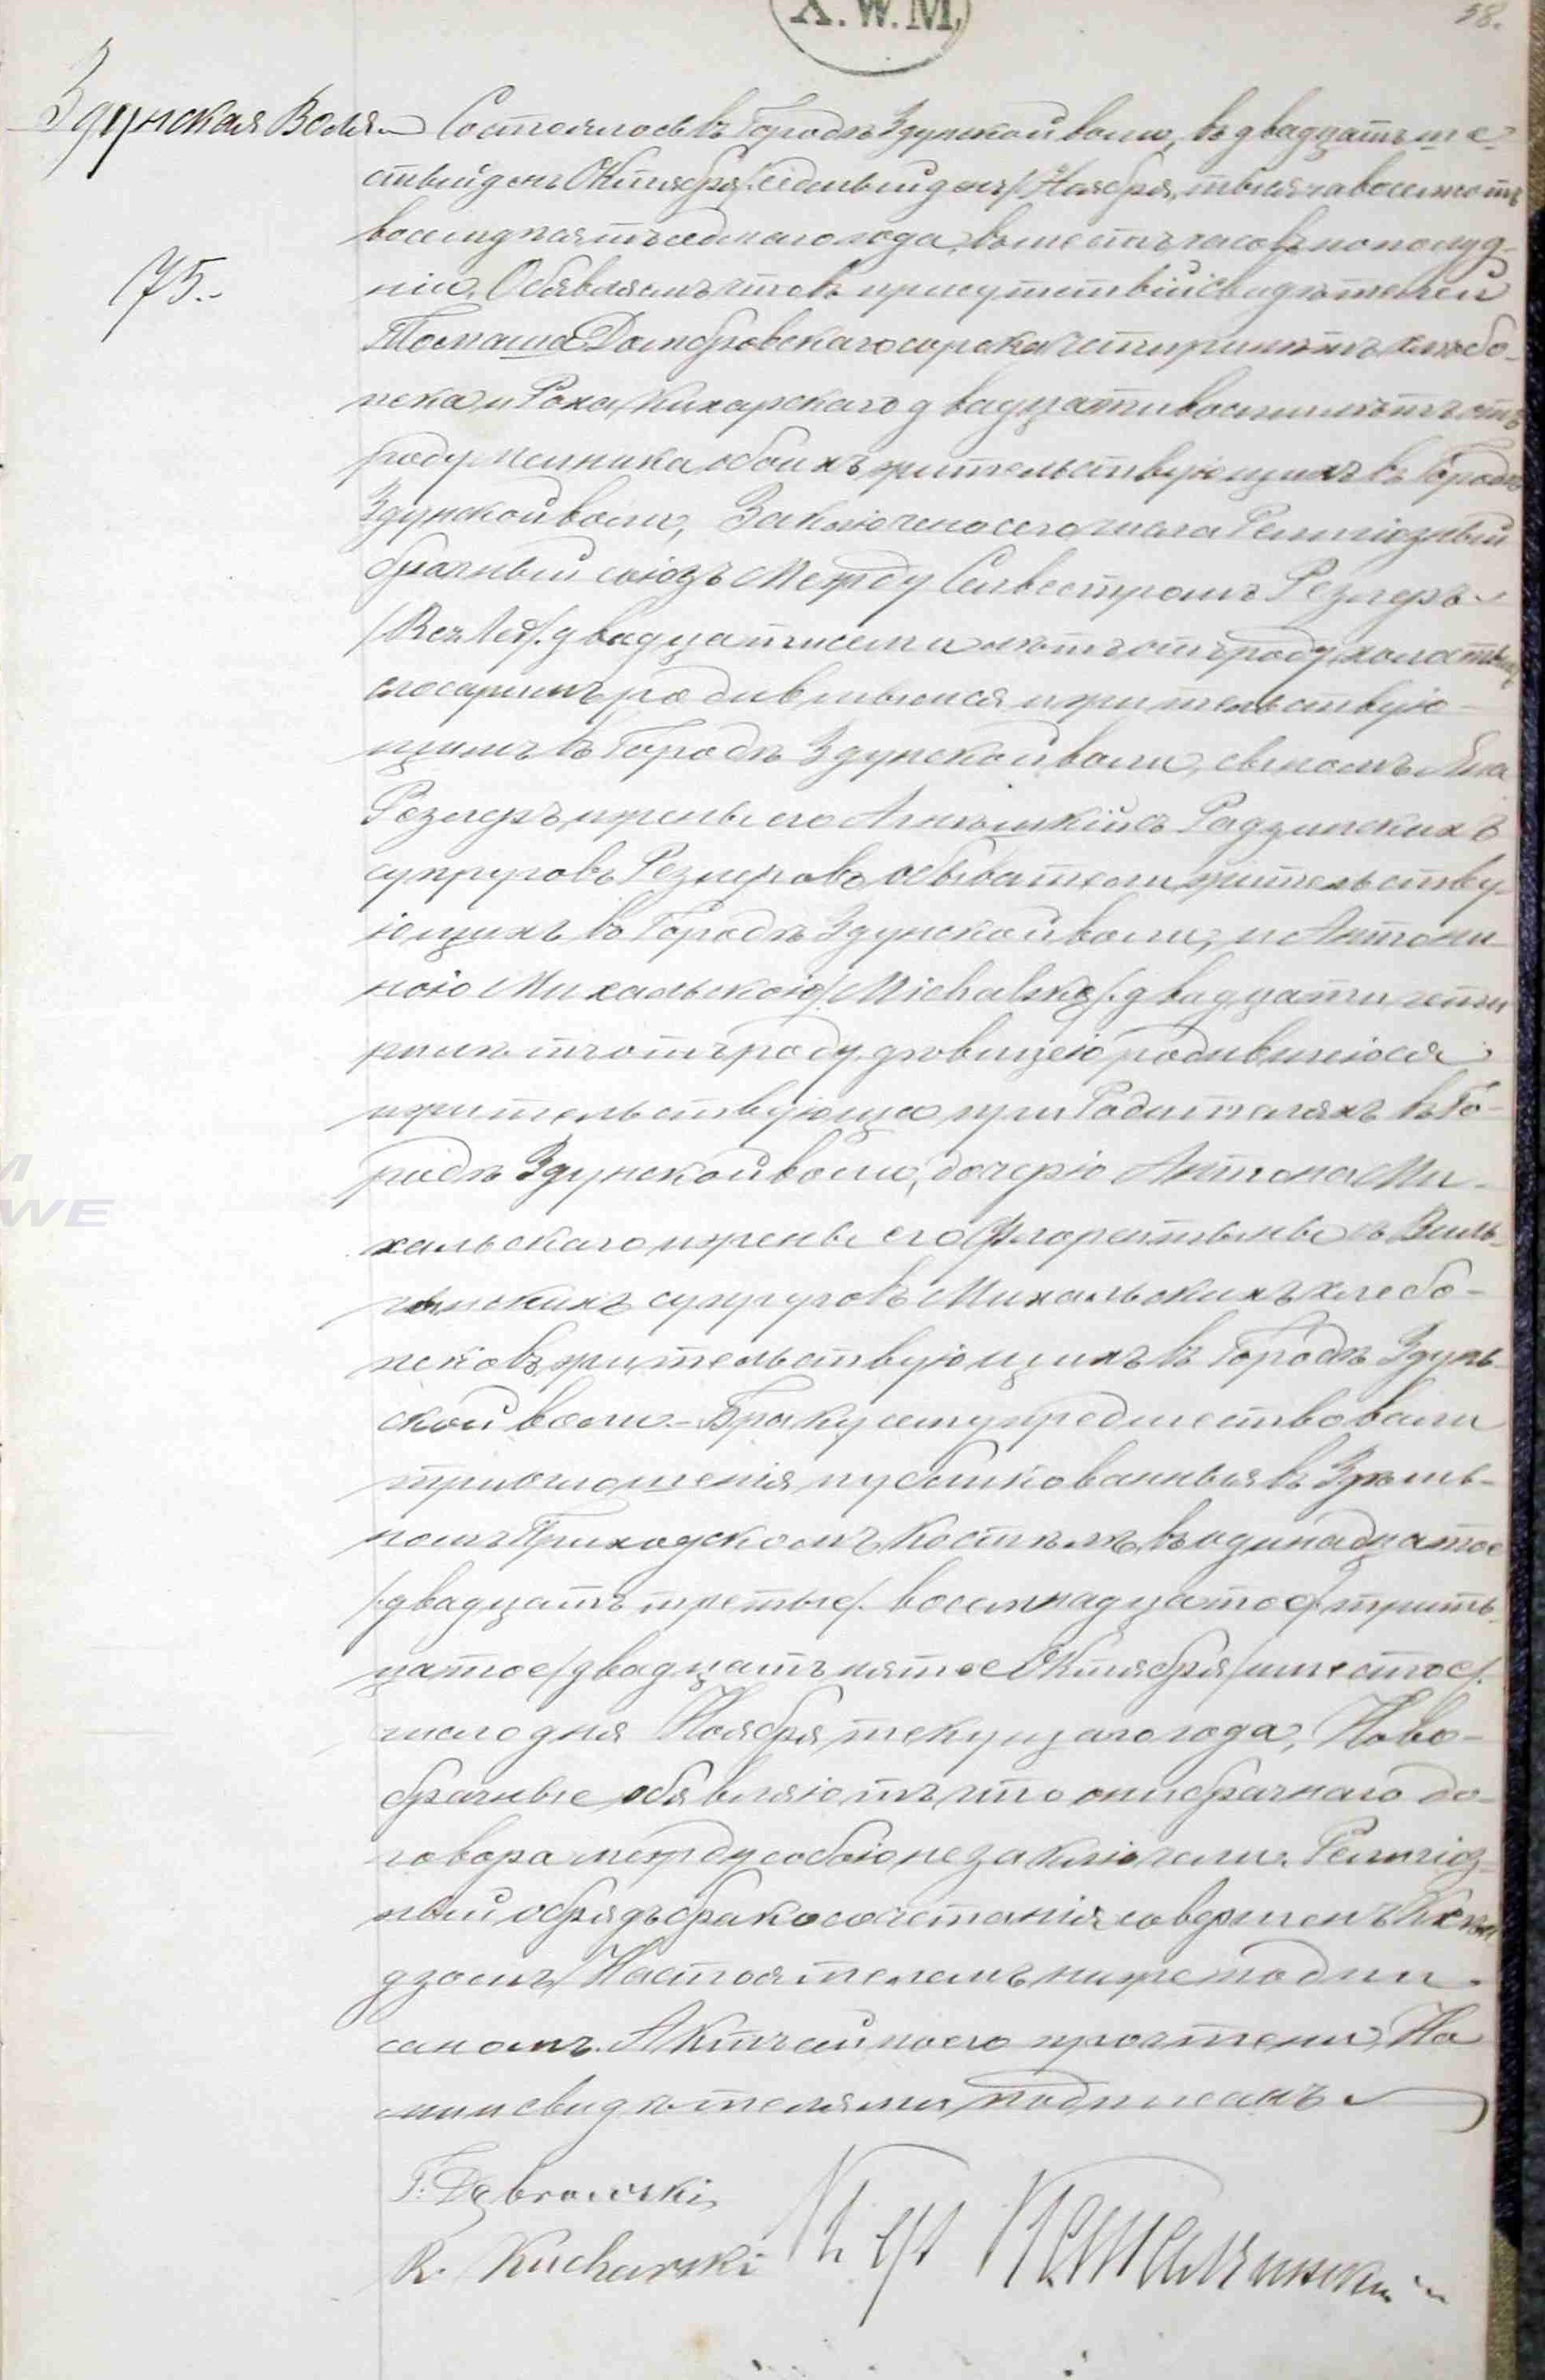 X.W.M.
58.
Здунская Воля
Состоялось въ Городѣ Здунской воли, въ двадцать ше-
стый день Октября /:седьмый день:/ Ноября, тысяча восемьсотъ
восемдесятъ седмаго года, въ шесть часовъ по полуд-
175.
ни. Объявляемъ что въ присутствіи свидѣтелей
Томаша Домбровскаго сорока четырехъ лѣтъ хлѣбо-
пека и Роха Кухарскаго двадцати восьми лѣтъ отъ
роду обоихъ жительствующихъ въ Городѣ
Здунской воли, Заключено сего числа Религіозный
брачный союзъ Между Сильвестромъ Резлеръ
/Rezler/. двадцати семи лѣтъ отъ роду холостымъ
слесаримъ родившымся и жительствую-
щимъ въ Городѣ Здунской воли, сыномъ Яна
Резлеръ и жены его Агнѣшки изъ Радзинскихъ
супруговъ Резлеровъ обывателей жительству-
ющихъ въ Городѣ Здунской воли, и Антони-
ною Михальскою /Michalską/. двадцати четы
рехъ лѣтъ отъ роду дѣвицею родившеюся
и жительствующею при Родителяхъ въ Го-
родѣ Здунской воли, дочерію Антона Ми-
хальскаго и жены его Флорентыны изъ
супруговъ Михальскихъ хлебо-
пековъ, жительствующихъ въ Городѣ Здунь-
ской воли. - Браку сему предшествовали
три оглошенія публикованныя въ Здѣшь-
номъ Приходскомъ Костелѣ, въ одинадцатое
/:двадцать третье/. восемнадцатое /:трить-
цатое/ двадцать пятое Октября /шестое/.
числа дня Ноября текущаго года, Ново-
брачные объявляютъ что они брачнаго до-
говора между собою не заключали. Религіоз-
ный обрядъ бракосочетанія совершенъ Ксен-
дзомъ Настоятелемъ нижеподпи-
саномъ. Актъ сей по его прочтени, На
ми и свидѣтелями подписанъ
T. Dąbrowski
R. Kucharski